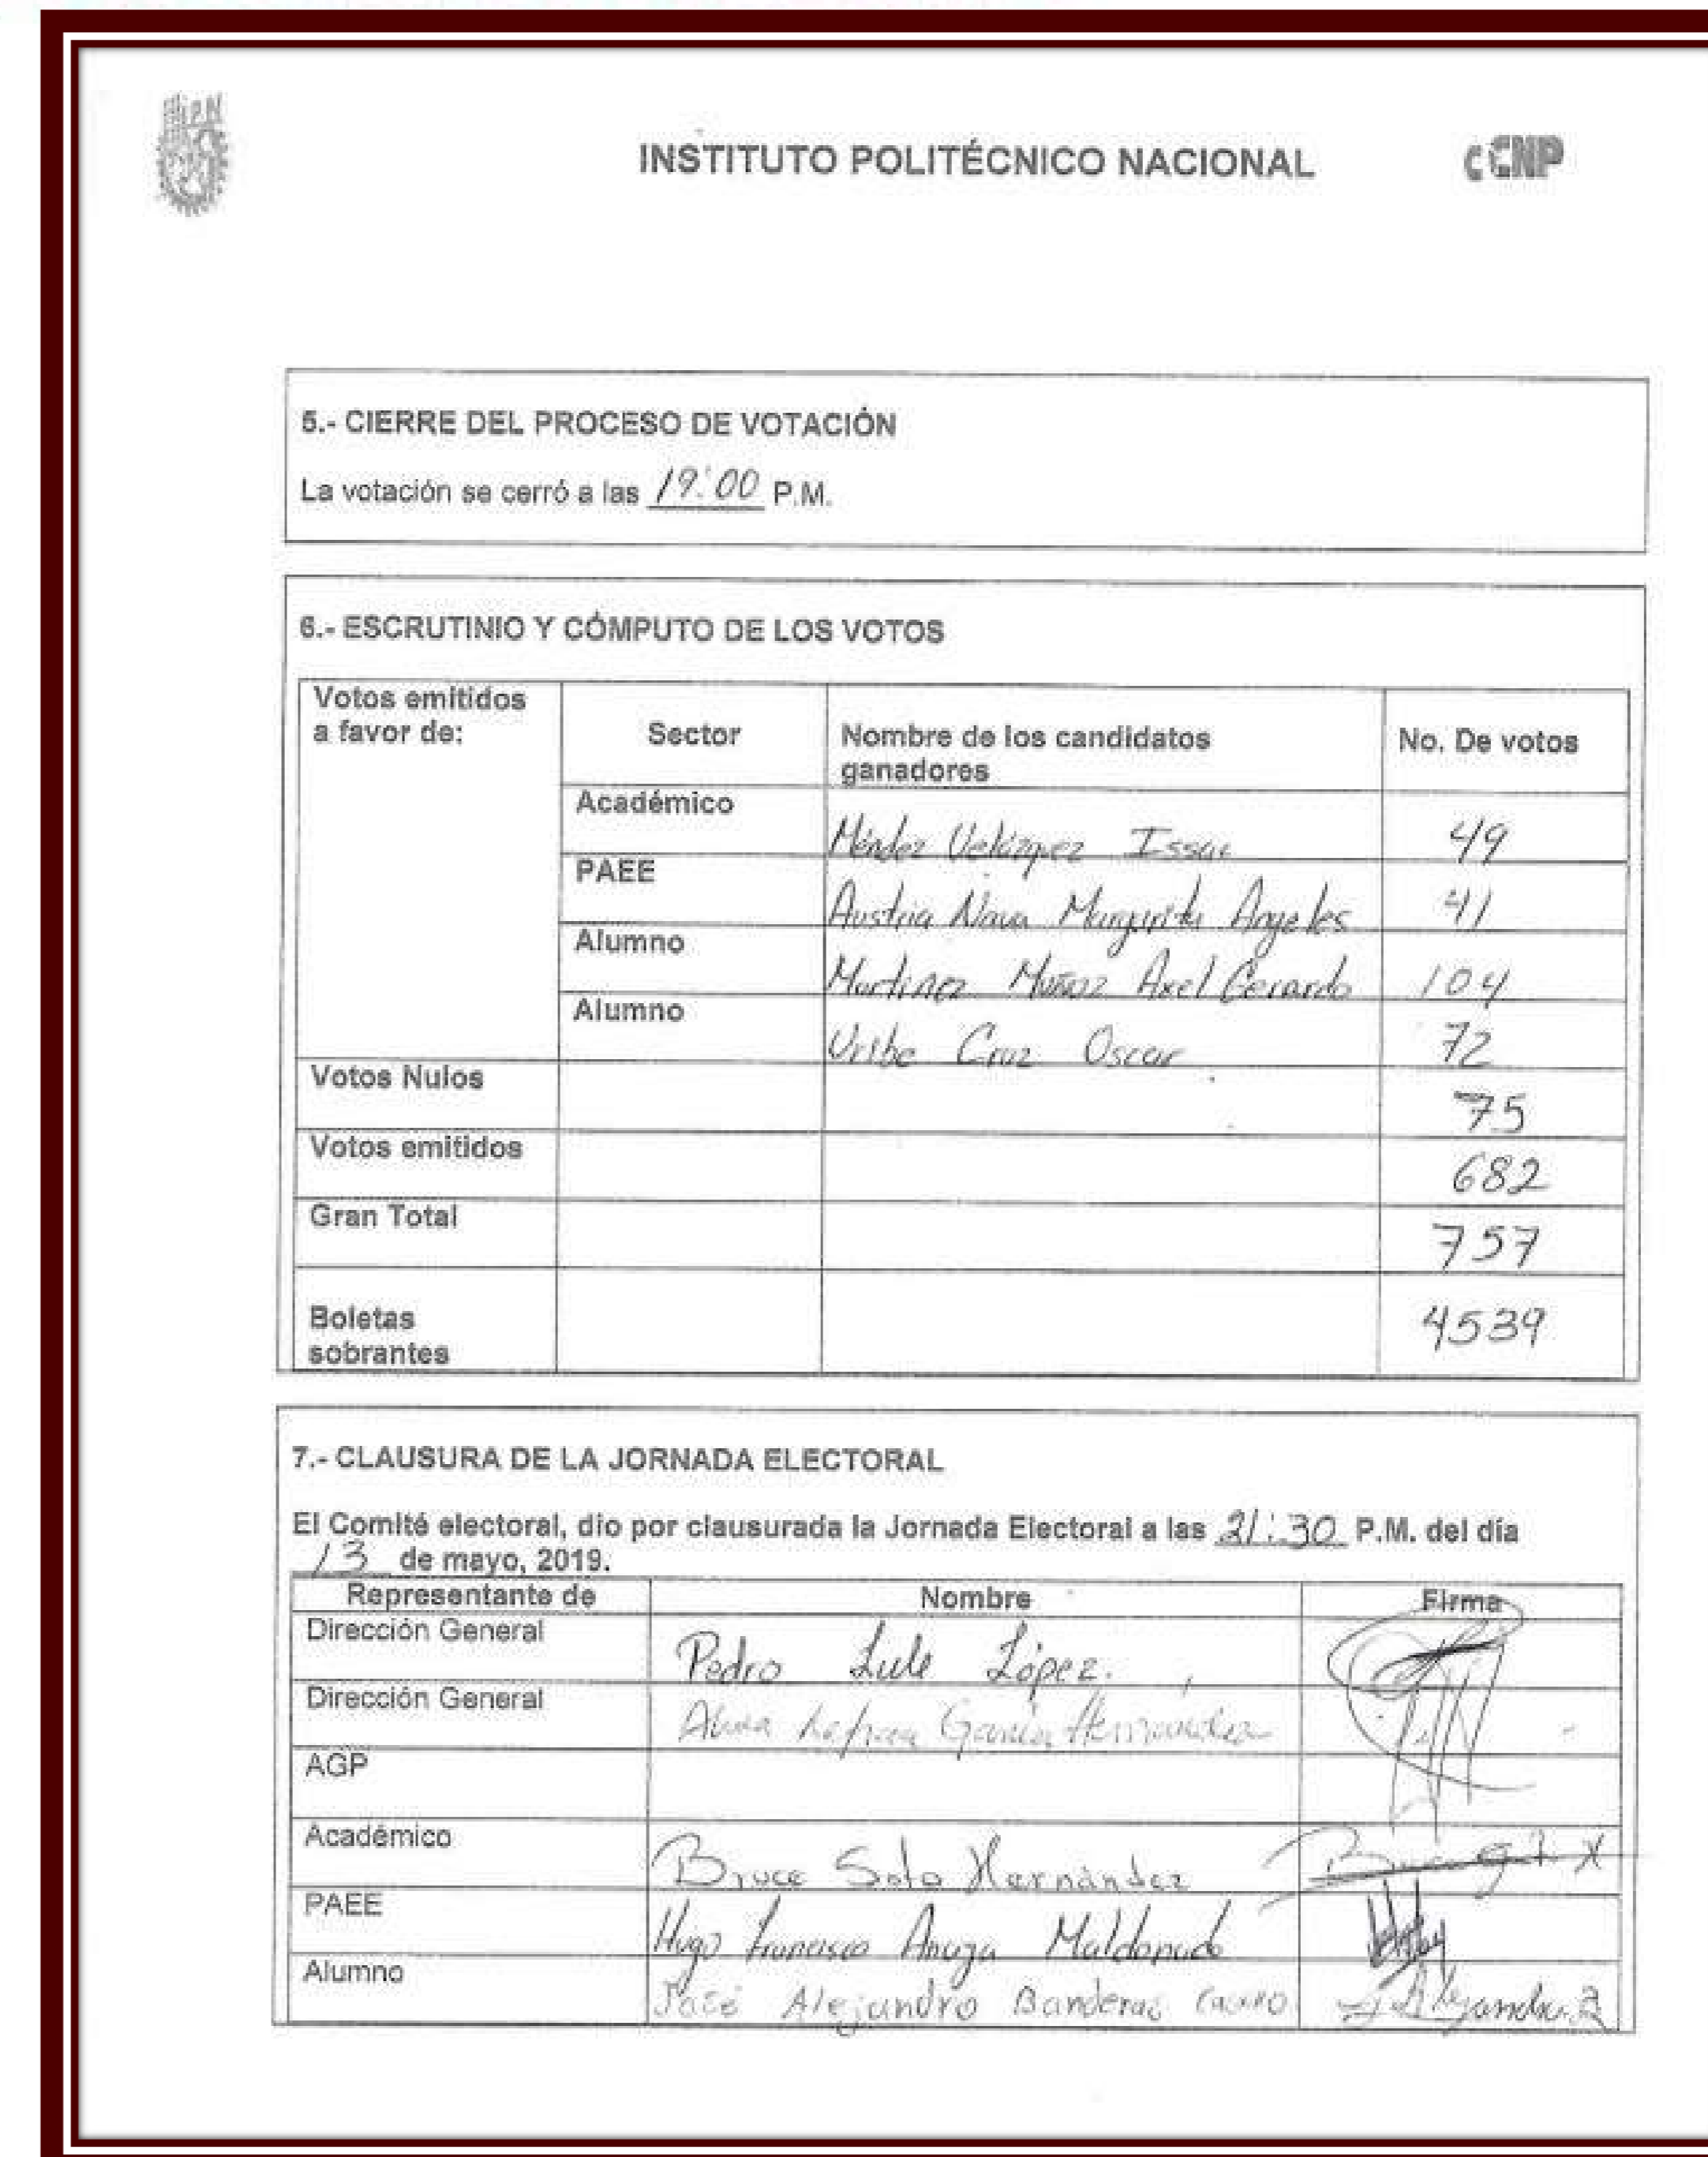 IPN
INSTITUTO POLITÉCNICO NACIONAL
CCNP
5.- CIERRE DEL PROCESO DE VOTACIÓN
La votación se cerró a las 19:00 P.M.
6.- ESCRUTINIO Y CÓMPUTO DE LOS VOTOS
Votos emitidos
a favor de:
Sector
Nombre de los candidatos
ganadores
No. De votos
Académico Méndez Velázquez Issac 49
PAEE Austria Nava Margarita Angeles 41
Alumno Martinez Muñoz Axel Gerardo 104
Alumno Uribe Cruz Oscar 72
Votos Nulos 75
Votos emitidos 682
Gran Total 757
Boletas
sobrantes 4539
7.- CLAUSURA DE LA JORNADA ELECTORAL
El Comité electoral, dio por clausurada la Jornada Electoral a las 21:30 P.M. del día
13 de mayo, 2019.
Representante de Nombre Firma
Dirección General Pedro Lule López.
Dirección General García Hernández
AGP
Académico Bruce Soto Hernández
PAEE Hugo Francisco Maldonado
Alumno José Alejandro Banderas